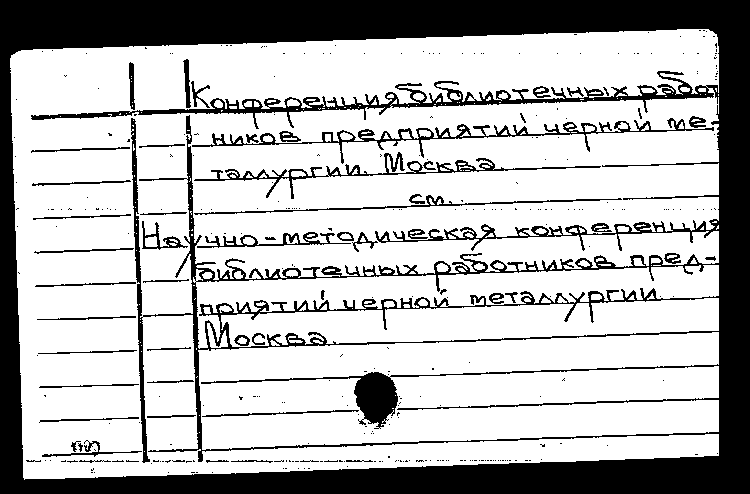 Конференция библиотечных работ
ников предприятий черной ме-
таллургии. Москва.
см.
Научно-методическая конференция
библиотечных работников пред-
приятий черной металлургии
Москва.